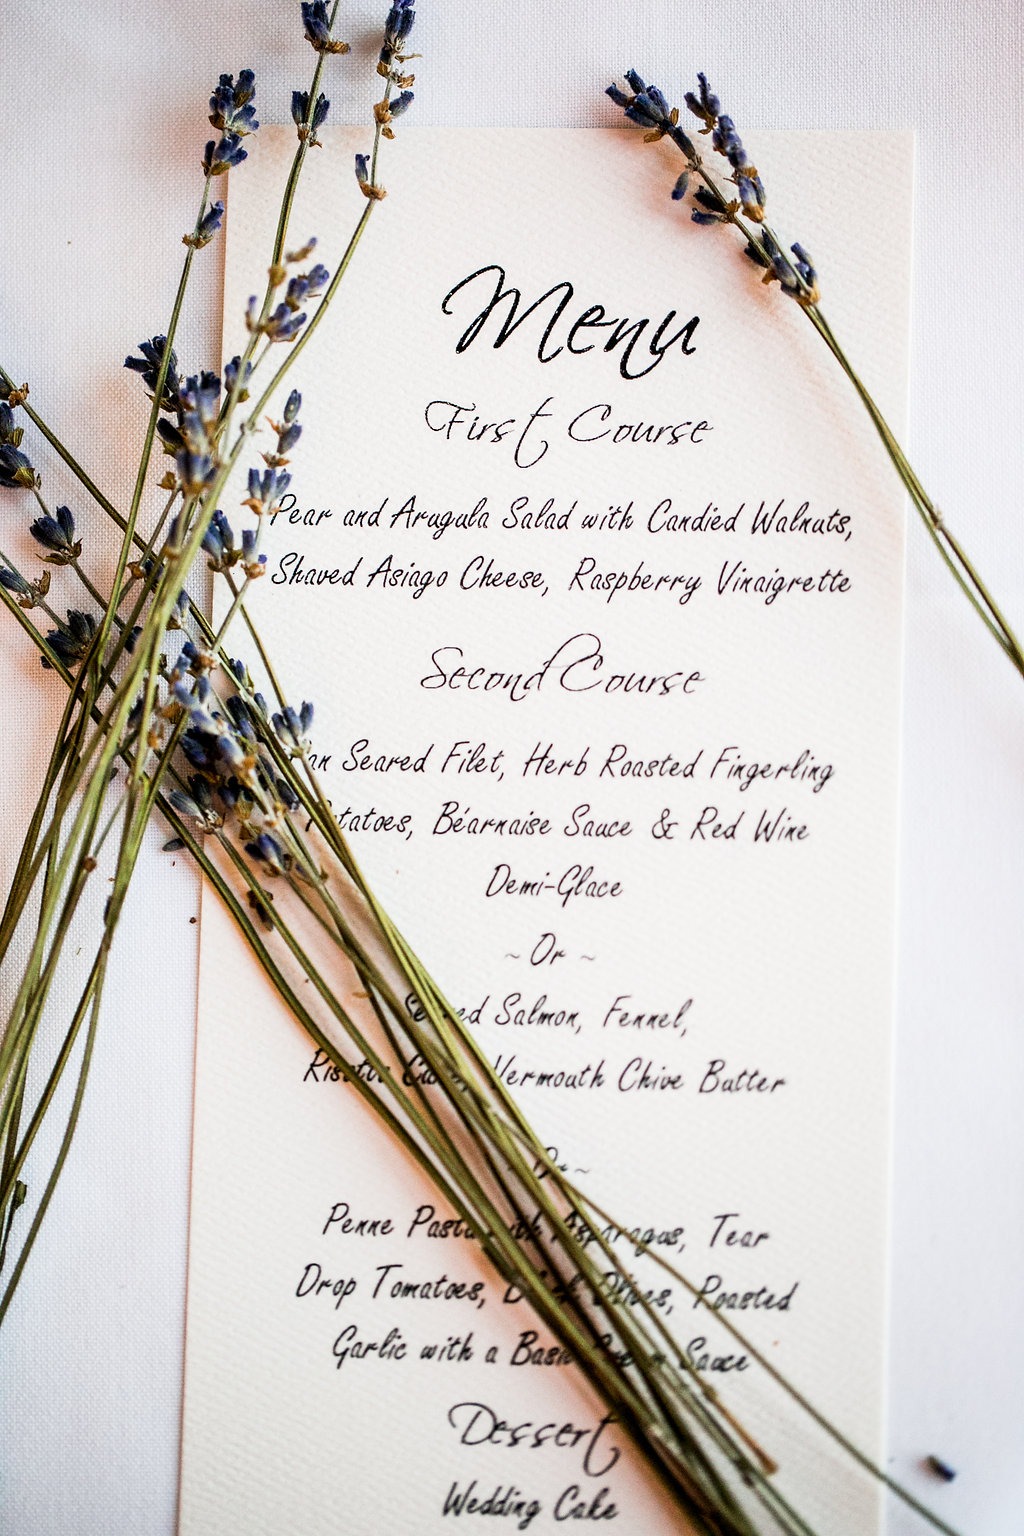 Menu
First Course
Pear and Arugula Salad with Candied Walnuts,
Shaved Asiago Cheese, Raspberry Vinaigrette
Second Course
Pan Seared Filet, Herb Roasted Fingerling
Potatoes, Béarnaise Sauce & Red Wine
Demi-Glace
~ Or ~
Salmon, Fennel,
Vermouth Chive Butter
~ Or ~
Penne Pasta with Asparagus, Tear
Drop Tomatoes, Black Olives, Roasted
Garlic with a Basil Cream Sauce
Dessert
Wedding Cake